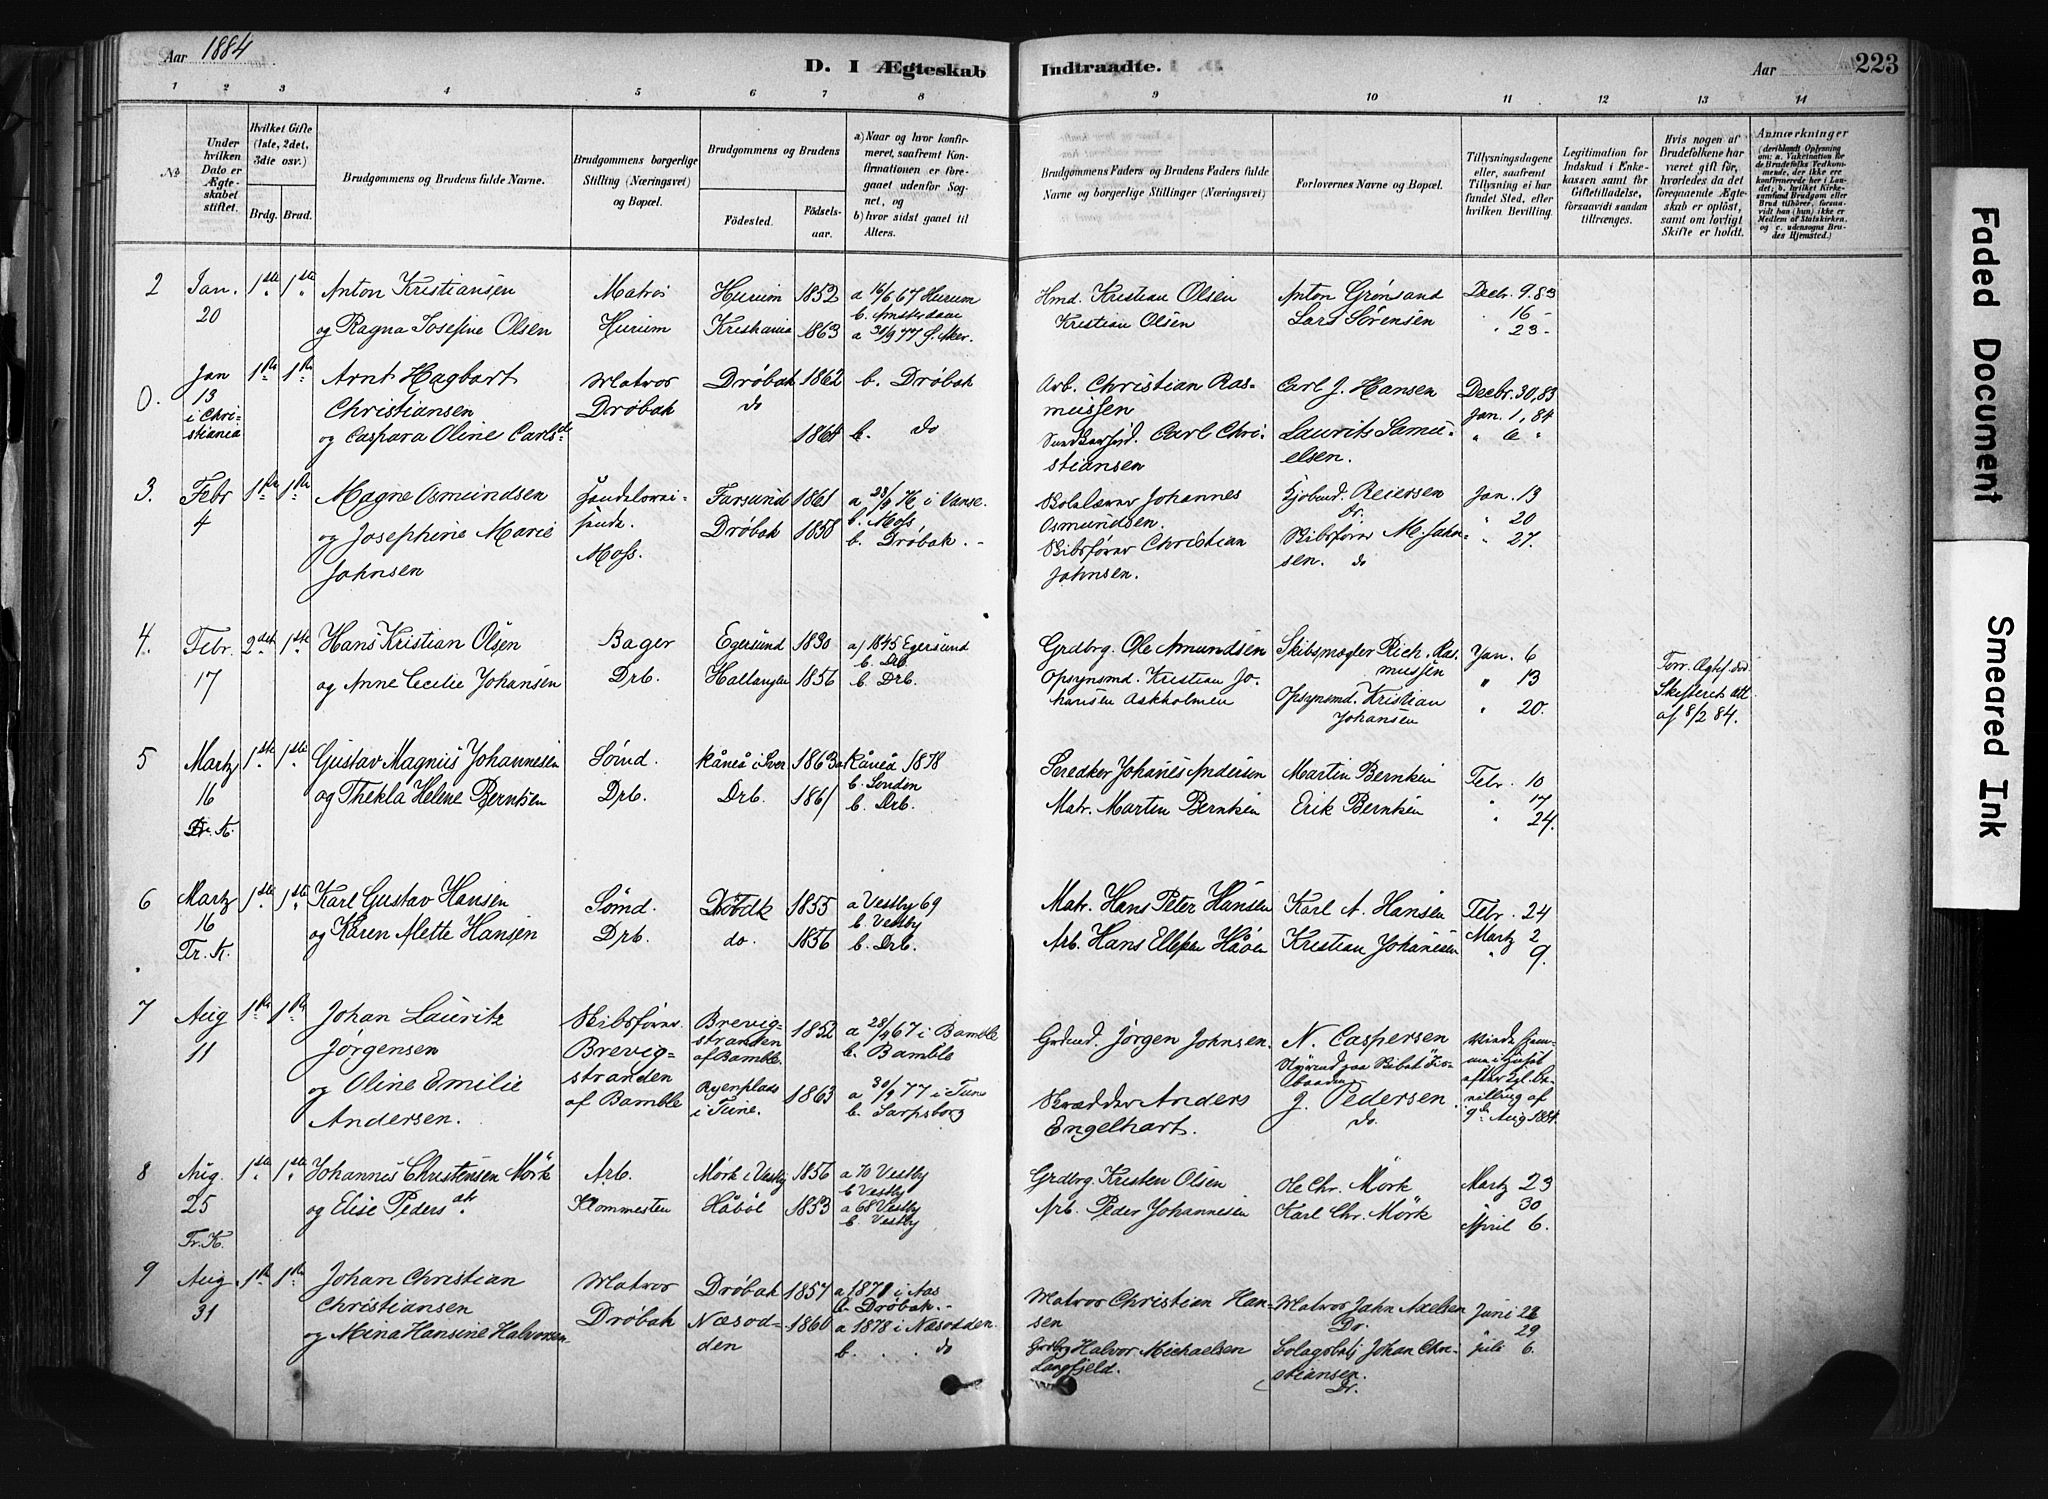 Aar 1884.
D. I Ægteskab Indtraadte.
Aar
223
1 2 3 4 5 6 7 8 9 10 11 12 13 14
No
Under hvilken Dato er Ægteskabet stiftet.
Hvilket Gifte (1ste, 2det, 3die osv.)
Brdg. Brud.
Brudgommens og Brudens fulde Navne.
Brudgommens borgerlige Stilling (Næringsvei) og Bopæl.
Brudgommens og Brudens
Fødested.
Fødselsaar.
a) Naar og hvor konfirmeret, saafremt Konfirmationen er foregaaet udenfor Sognet, og
b) hvor sidst gaaet til Alters.
Brudgommens Faders og Brudens Faders fulde Navne og borgerlige Stillinger (Næringsvei)
Forlovernes Navne og Bopæl.
Tillysningsdagene eller, saafremt Tillysning ei har fundet Sted, efter hvilken Bevilling.
Legitimation for Indskud i Enkekassen samt for Giftetilladelse, forsaavidt saadan tiltrænges.
Hvis nogen af Brudefolkene har været gift før, hvorledes da det foregaaende Ægteskab er opløst, samt om lovligt Skifte er holdt.
Anmærkninger (deriblandt Oplysning om: a. Vakcination for de Brudefolks Vedkommende, der ikke ere konfirmerede her i Landet; b. hvilket Kirkesamfund Brudgom eller Brud tilhører, forsaavidt han (hun) ikke er Medlem af Statskirken, og c. udensogns Brudes Hjemsted.)
2 Jan. 1ste 1ste Anton Kristiansen Matros Hurum 1852 a 16/6 67 Hurum Hmd. Kristian Olsen Anton Grønsand Decbr. 9. 83
b. Amsterdam
20 og Ragna Josefine Olsen Hurum Kristiania 1863 a 30/9 77 Ø. Aker. Kristian Olsen Lars Sørensen " 16 -
" 23 -
0. Jan 1ste 1ste Arnt Hagbart Matros Drøbak 1862 b. Drøbak Arb. Christian Ras- Carl J. Hansen Decbr. 30, 83
13 Christiansen Drøbak do mussen Jan. 1, 84
i Christiania og Caspara Oline Carlsd 1864 b. do Carl Chri- Laurits Samu- " 6 "
stiansen elsen.
3. Febr 1ste 1ste Magne Osmundsen Handelsrei- Farsund 1861 a 23/9 76 i Vanse. Skolelærer Johannes Kjøbmd. Reiersen Jan. 13
4 og Josephine Marie sende. Drøbak 1858 b. Moss Osmundsen. Dr. " 20
Johnsen Moss. b. Drøbak. - Skibsfører Christian Skibsfører M. John- " 27.
Johnsen. sen. do
4. Febr. 2det 1ste Hans Kristian Olsen Bager Egersund 1830 a) 1845 Egersund Grdbrg. Ole Amundsen Skibsmægler Rich. Ras- Jan. 6
b. Drb. mussen
17 og Anne Cecilie Johansen Drb. Hallangen 1856 b. Drb. Opsynsmd. Kristian Jo- Opsynsmd. Kristian " 13
hansen Askholmen Johansen " 20.
Forr. Ægtef. død
Skifteret. att.
af 8/2 84.
5 Martz 1ste 1ste Gustav Magnus Johannesen Sømd. Råneå i Sver 1863 a Råneå 1878 Johanes Andersen Martin Berntsen Febr. 10
b. London
16 og Thekla Helene Berntsen Drb. Drb. 1861 b. Drb. Matr. Martin Berntsen Erik Berntsen " 17
Dr. K. " 24.
6 Martz 1ste 1ste Karl Gustav Hansen Sømd. Drøbak 1855 a Vestby 69 Matr. Hans Peter Hansen Karl A. Hansen Febr. 24
16 b. Vestby Martz 2
Fr. K. og Karen Mette Hansen Drb. do. 1856 b. Drb. Arb. Hans Ellefsen Håøen Kristian Johanesen " 9.
7 Aug 1ste 1ste Johan Lauritz Skibsfører Brevig- 1852 a 28/4 67 i Bamble Grdmd. Jørgen Johnsen. N. Caspersen
11 Jørgensen Brevig- stranden b. Bamble
af Bamble.
og Oline Emilie stranden Ryenplads 1863 a 30/9 77 i Tune Skrædder Anders J. Pedersen
Andersen. af Bamble i Tune. b. Sarpsborg Engelhart. do. 9de Aug 1884.
8 Aug. 1ste 1ste Johannes Christensen Mörk Arb. Mørk i Vestby 1856 a 70 Vestby Grdbrg. Kristen Olsen Ole Chr. Mörk Martz 23
b Vestby
25 og Elise Peders dtr. Klommesten Håbøl 1853 a 68 Vestby Arb. Peder Johannesen Karl Chr. Mörk " 30
Fr. K. b. Vestby April 6.
9 Aug 1ste 1ste Johan Christian Matros Drøbak 1857 a 1871 i Aas Matros Christian Han- Matros John Axelsen Juni 22
31 Christiansen Drøbak Næsod- 1860 b. Drøbak. - sen Dr. " 29
og Mina Hansine Halvorsen den a 1878 i Næsodden. Grdbrg Halvor Michaelsen Johan Chri- Juli 6.
b. . . do Langfjeld. stiansen.
Dr.
Faded Document
Smeared Ink